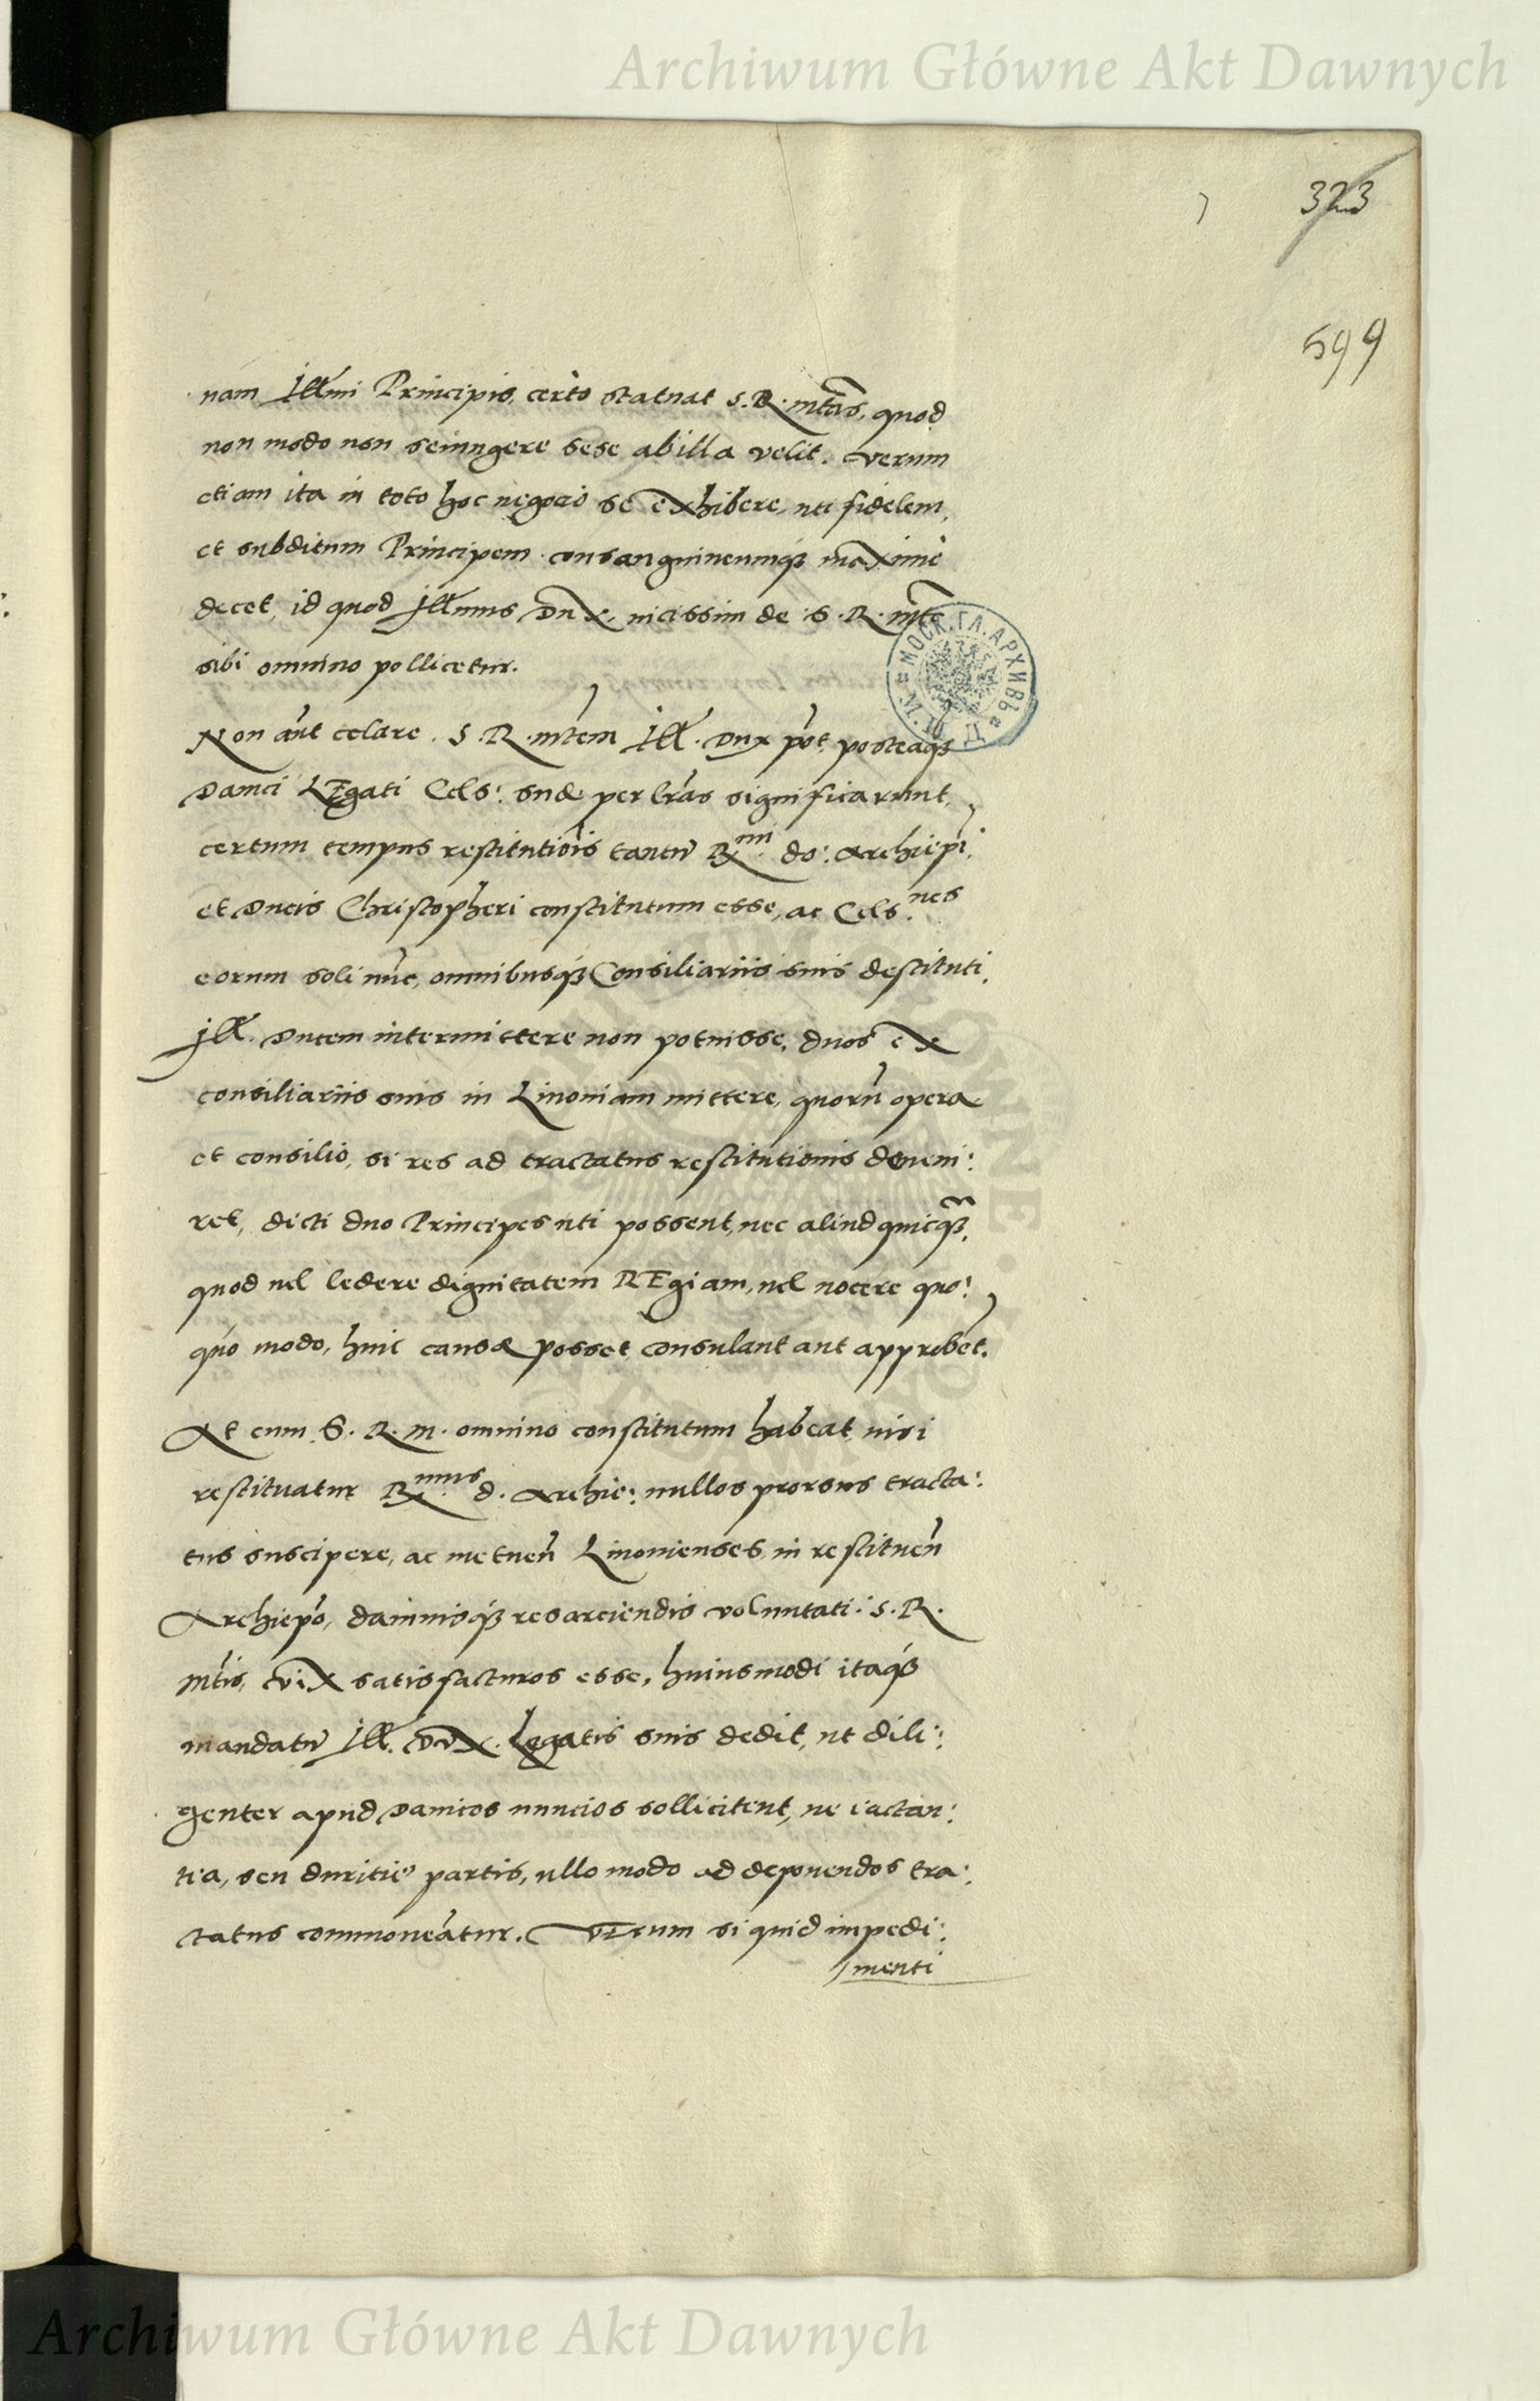 Archiwum Główne Akt Dawnych
323
599
nam Illmi Principis, certo statuat S. R. mtas, quod
non modo non seiungere sese ab illa velit. verum
etiam ita in toto hoc negocio se exhibere, uti fidelem,
et subditum Principem consanguineumq3 maximè
decet, id quod Illmus Dux, uicissim de S. R. mte
sibi omnino pollicetur.
Non aut celare S. R. mtem Ill. Dux pot, posteaq3
Danici LEgati Cels: suæ per lras significarunt,
certum tempus restitutiois tantu Rmi do: Archiepi,
et Ducis Christopheri constitutum esse, ac Cels.nes
eorum soli nuc, omnibusq3 Consiliariis suis destituti,
Ill. Ducem intermittere non potuisse, duos ex
consiliariis suis in Liuoniam mittere, quoru opera
et consilio, si res ad tractatus restitutionis deueni:
ret, dicti duo Principes uti possent, nec aliud quicq3,
quod uel ledere dignitatem REgiam, uel nocere quo:
quo modo, huic causæ posset consulant aut approbet.
At cum S. R. M. omnino constitutum habeat, nisi
restituatur Rmus d. Archie: nullos prorsus tracta:
tus suscipere, ac metuen Liuonienses, in restituen
Archiepo, damnisq3 resarciendis voluntati S. R.
Mtis, vix satisfacturos esse, huiusmodi itaq3
mandatu Ill. Dux. Legatis suis dedit, ut dili:
genter apud Danicos nuncios sollicitent, ne iactan:
tia, seu duritie partis, ullo modo ad deponendos tra:
ctatus commoueatur. VErum si quid impedi:
menti
МОСК. ГЛ. АРХИВЪ
Archiwum Główne Akt Dawnych